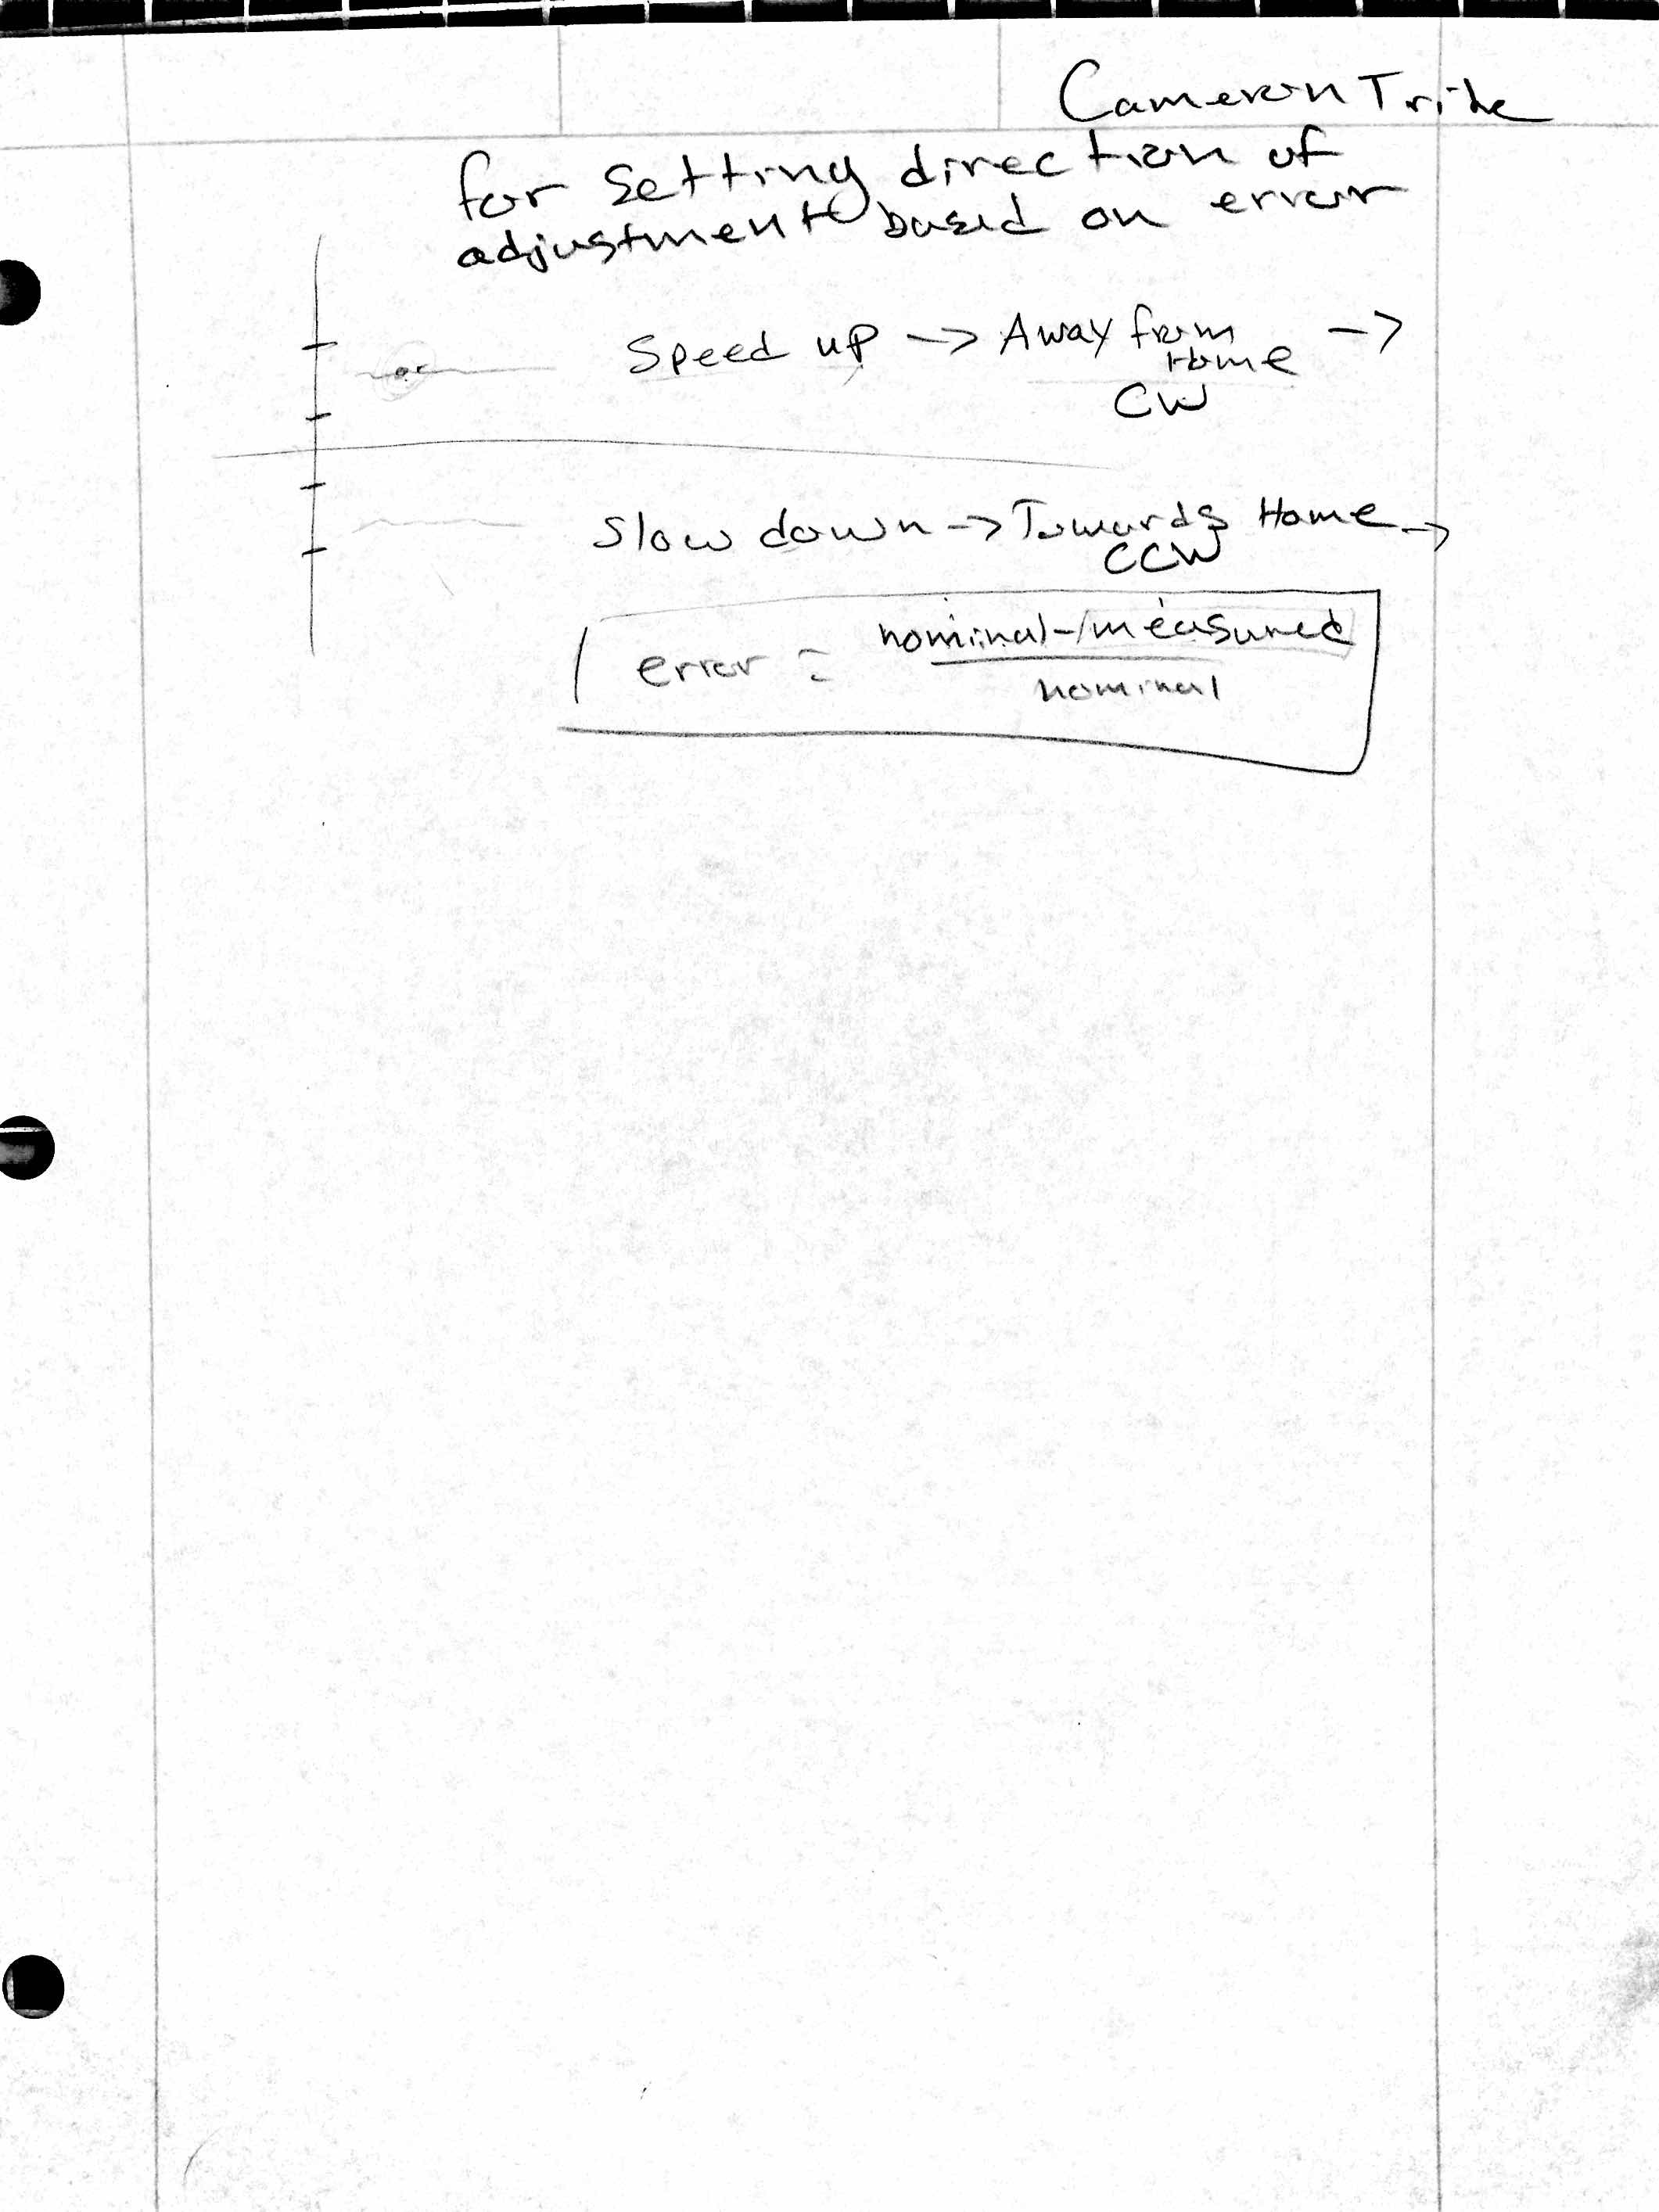 Cameron Tribe
for setting direction of
adjustment based on error
Speed up -> Away from Home ->
CW
Slow down -> Towards Home ->
CCW
error = nominal - measured
nominal